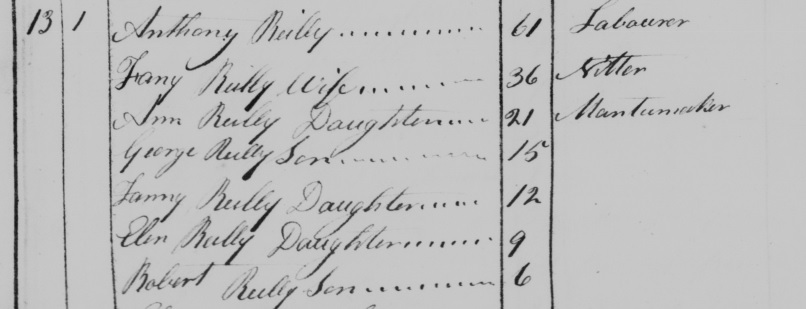 13 1 Anthony Reilly 61 Labourer
Fany Reilly Wife 36 Nitter
Ann Reilly Daughter 21 Mantumaker
George Reilly Son 15
Fanny Reilly Daughter 12
Elen Reilly Daughter 9
Robert Reilly Son 6